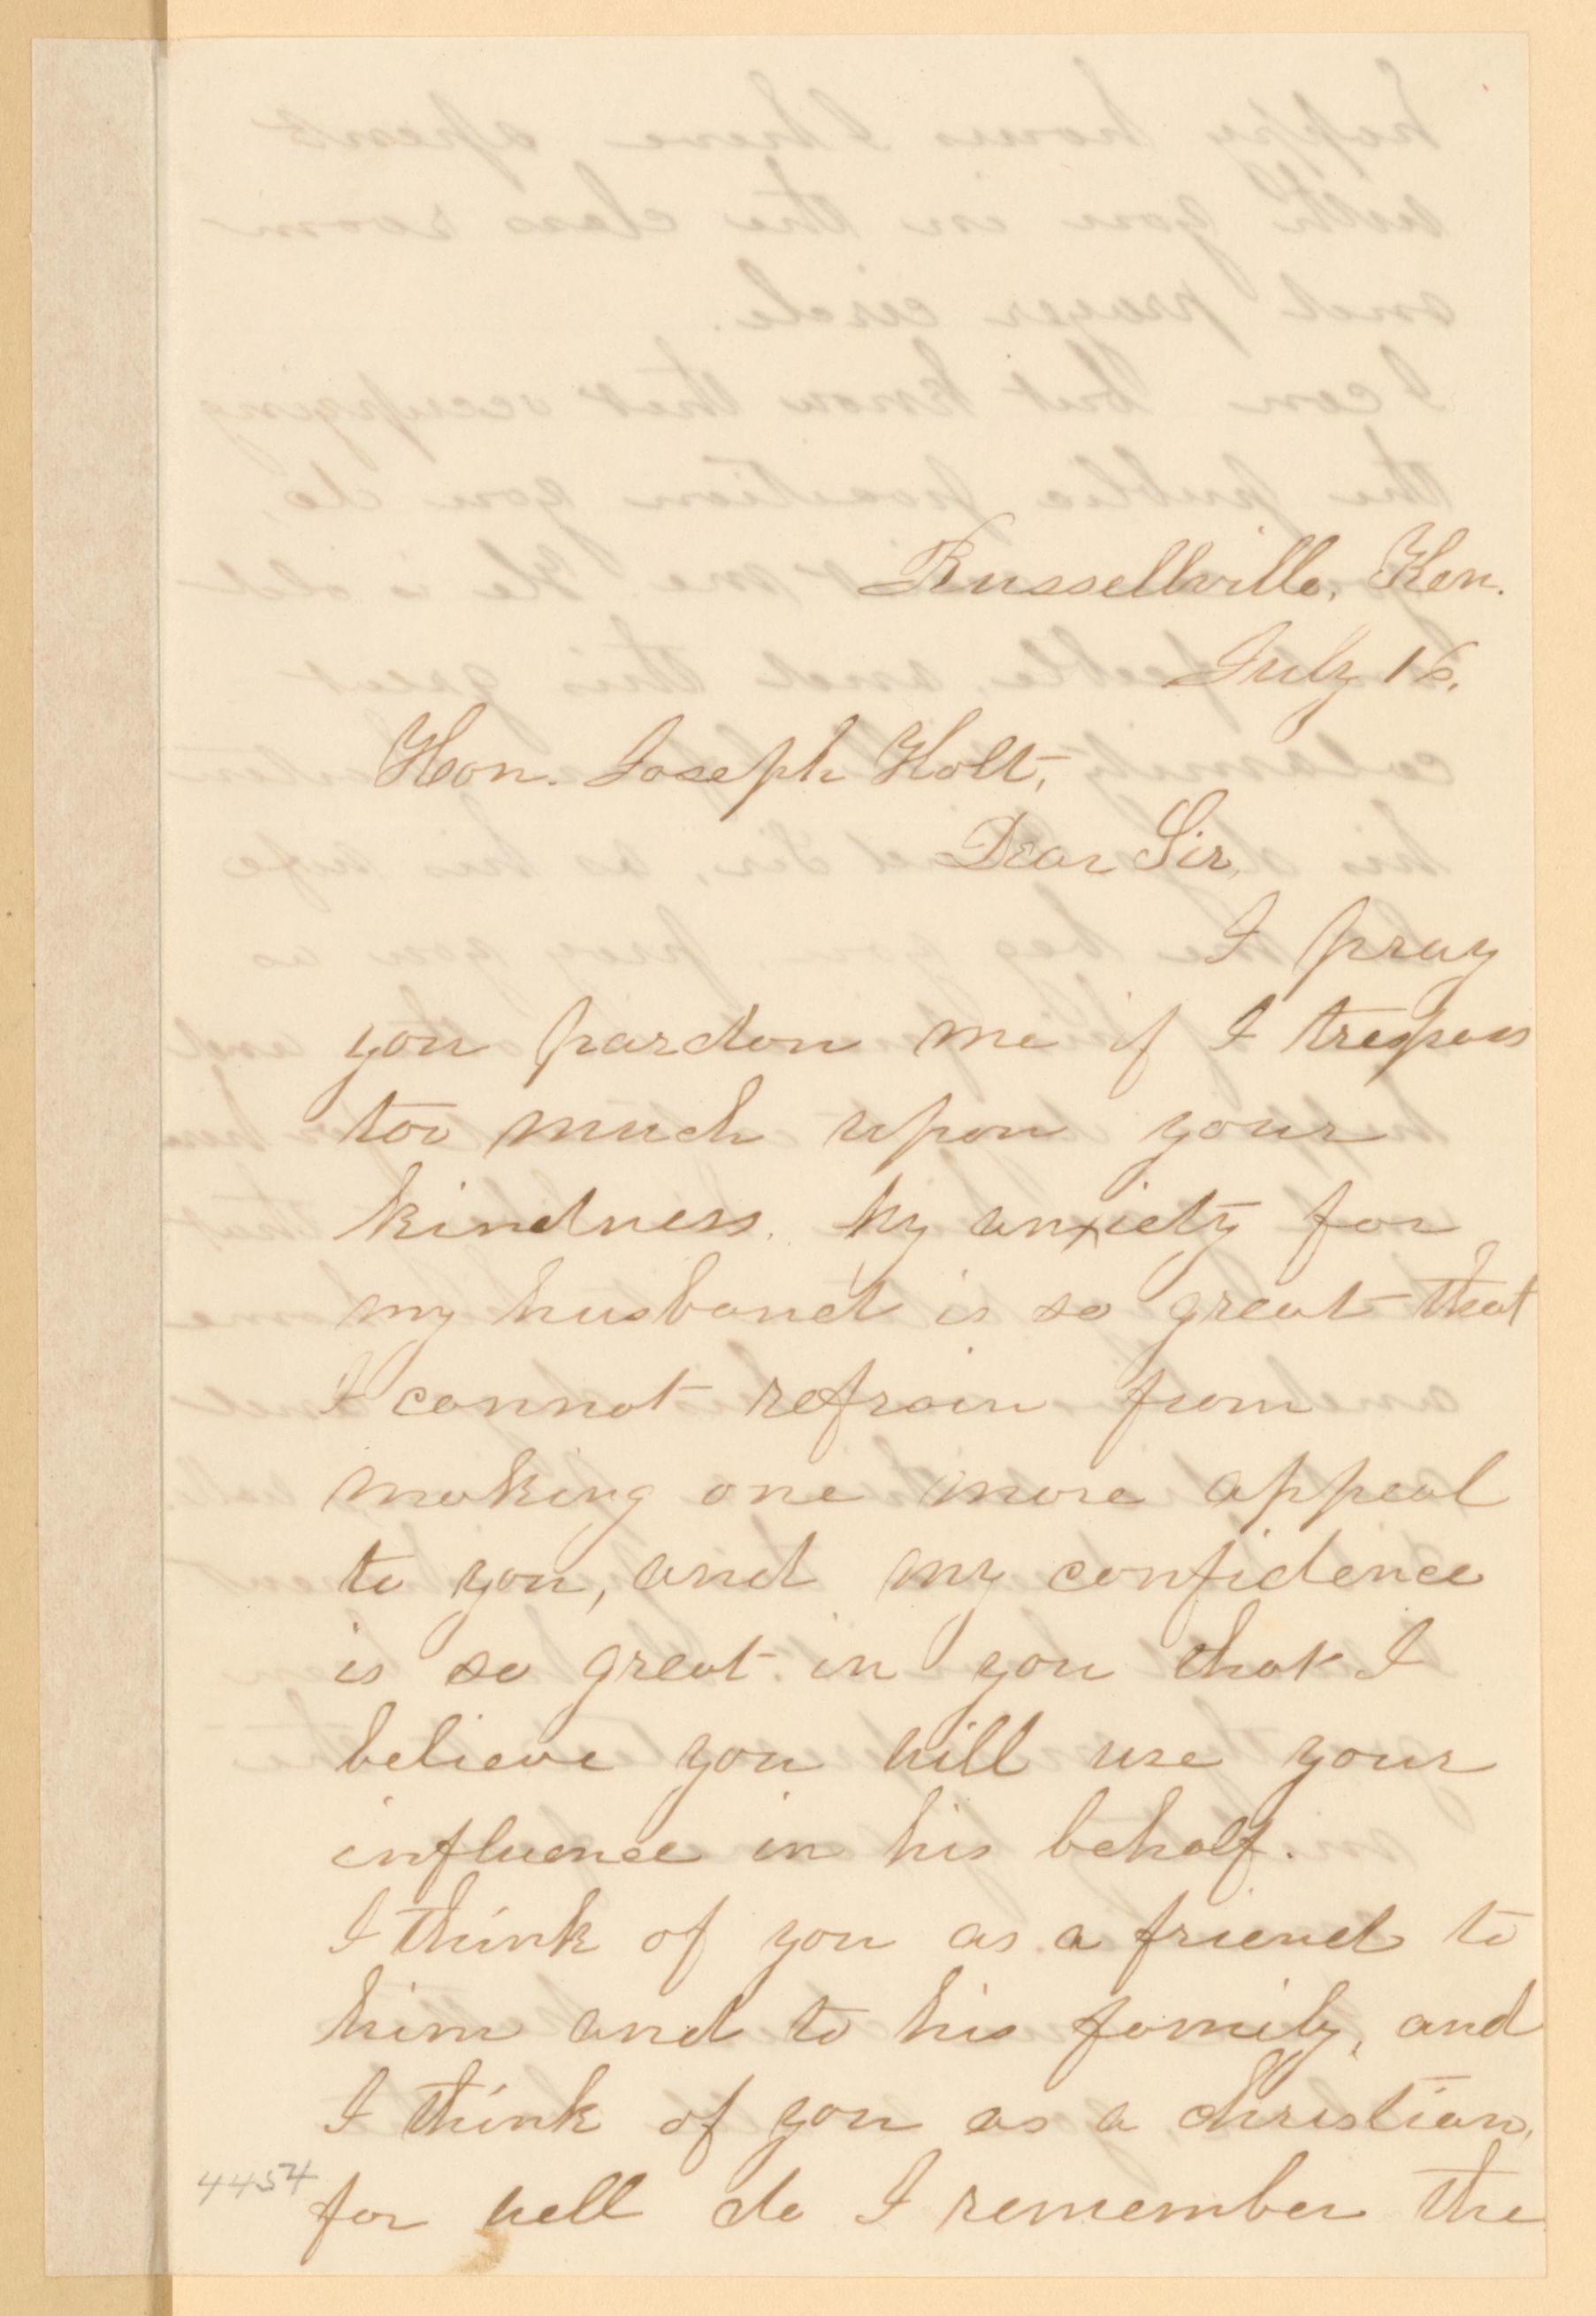 Russellville, Ken.
July 16.
Hon. Joseph Holt,
Dear Sir,
I pray
you pardon me if I trespass
too much upon your
kindness. My anxiety for
my husband is so great that
I cannot refrain from
making one more appeal
to you, and my confidence
is so great in you that I
believe you will use your
influence in his behalf.
I think of you as a friend to
him and to his family, and
I think of you as a christian,
for well do I remember the
4454